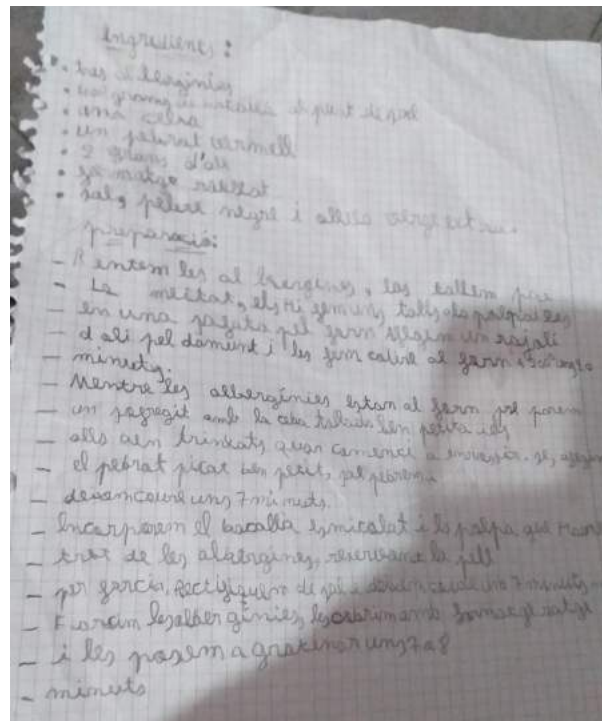 Ingredients:
• tres albergínies
• grams de bacallà al punt de sal
• una ceba
• un pebrot vermell
• 2 grans d'all
• formatge rallat
• sal, pebre negre i oli verge extra.
preparació:
- Rentem les albergines, les tallem per
- La meitat, els hi fem uns talls a la polpa i les
- en una safata pel forn afegim un rajolí
- d'oli pel damunt i les fem coure al forn a
- minuts.
- Mentre les albergínies estan al forn preparem
- un sofregit amb la ceba tallada ben petita i els
- alls ben trinxats quan comenci a enrossir-se, afegim
- el pebrot picat ben petit, sal pebre i
- deixem coure uns 7 minuts.
- Incorporem el bacallà esmicolat i la polpa que Haurem
- tret de les albergines, reservant la pell
- per farcir. Rectifiquem de sal i deixem coure uns 7 minuts
- Farcim les albergínies, les cobrim amb formatge ratge
- i les posem a gratinar uns 7 a 8
- minuts